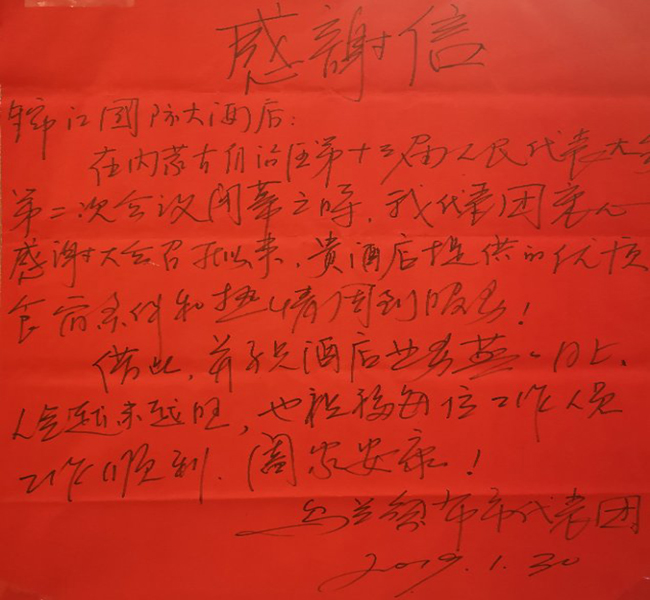 感謝信
锦江國际大酒店:
在内蒙古自治区第十三届人民代表大会
第二次会议闭幕之時，我代表团衷心
感谢大会召开以来，贵酒店提供的优质
食宿条件和热情周到服务!
借此，并祝酒店业务蒸蒸日上、
人气越来越旺，也祝福每位工作人员
工作顺利.阖家安康!
乌兰察布市代表团
2019.1.30